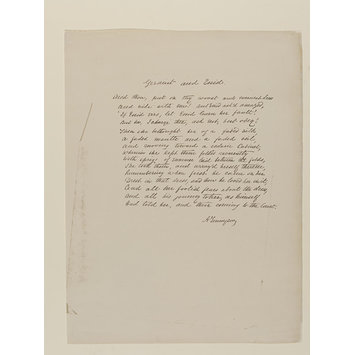 Geraint and Enid.
And thou, put on thy worst and meanest dress
And ride with me. And Enid ask'd amazed,
If Enid errs, let Enid learn her fault?
But he, I charge thee, ask not, but obey!
Then she bethought her of a faded silk
A faded mantle and a faded veil,
And moving toward a cedarn Cabinet,
Wherein she kept them folded reverently
With sprigs of summer laid between the folds,
She took them, and array'd herself therein
Remembering when first he came on her
Drest in that dress, and how he loved her in it
And all her foolish fears about the dress,
And all his journey to her, as himself
Had told her, and their coming to the Court.
A Tennyson